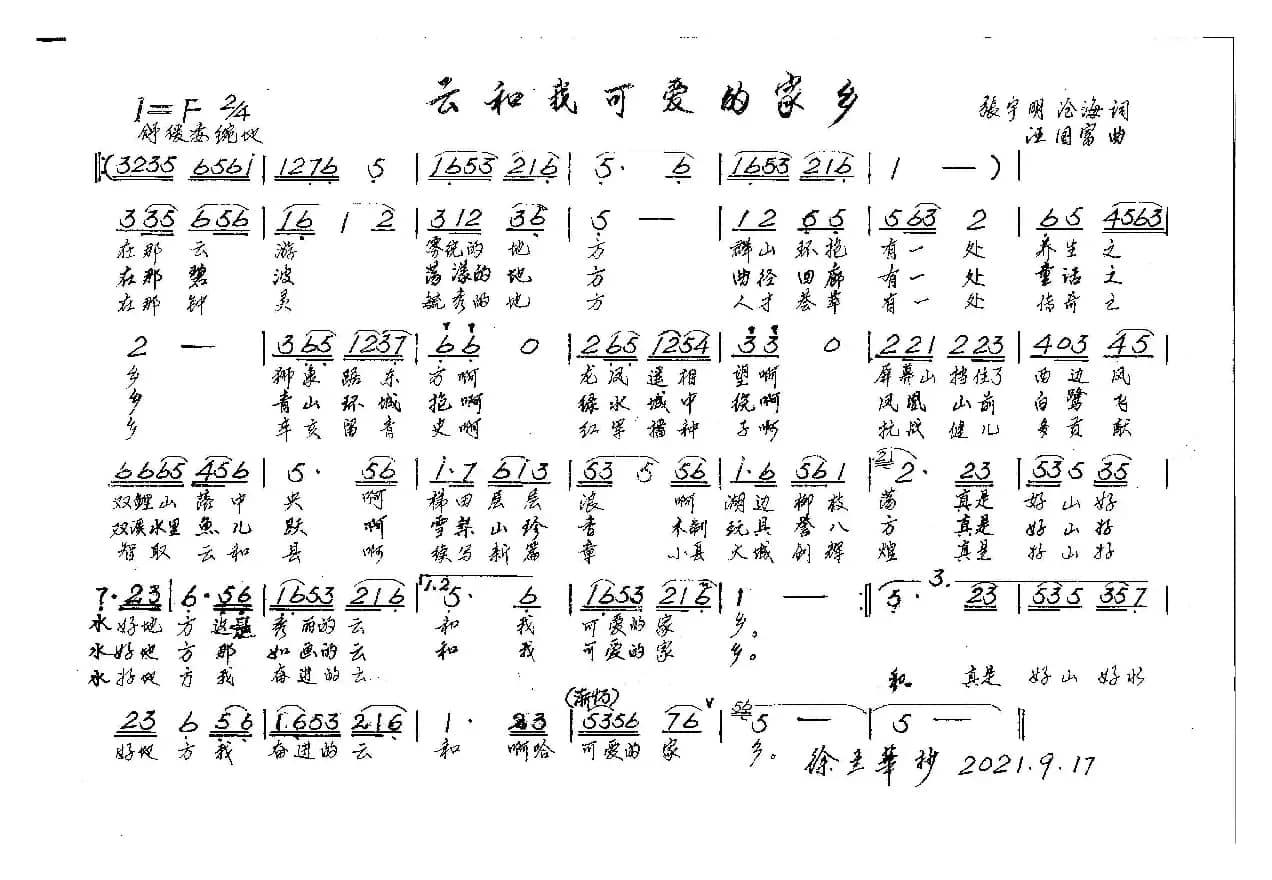 云和我可爱的家乡
1=F 2/4
张宇明 沧海 词
舒缓委婉地
汪国富 曲
(3235 6561 | 1276 5 | 1653 216 | 5· 6 | 1653 216 | 1 — ) |
335 656 | 16 1 2 | 312 36 | 5 — | 12 65 | 563 2 | 65 4563 |
在那云 游 雾绕的地 方 群山环抱 有一处 养生之
在那碧 波 荡漾的地 方 曲径回廊 有一处 童话之
在那钟 灵 毓秀的地 方 人才荟萃 有一处 传奇之
2 — | 365 1237 | 66 0 | 265 1254 | 33 0 | 221 223 | 403 45 |
乡 狮象踞东 方啊 龙凤遥相 望啊 屏幕山挡住了 西边风
乡 青山环城 抱啊 绿水城中 绕啊 凤凰山前 白鹭飞
乡 辛亥留青 史啊 红军播种 子啊 抗战健儿 多贡献
6665 456 | 5· 56 | 1·7 613 | 53 5 56 | 1·6 561 | 2· 23 | 535 35 |
双鲤山落中 央 啊 梯田层层 浪 啊 湖边柳枝 荡 真是 好山好
双溪水里鱼儿 跃 啊 雪梨山珍 香 木制玩具誉八 方 真是 好山好
智取云和 县 啊 续写新篇 章 小县大城创辉 煌 真是 好山好
7·23 | 6·56 | 1653 216 | 1.2 5· 6 | 1653 216 | 1 — :| 3. 5· 23 | 535 357 |
水好地方这是 秀丽的云 和 我 可爱的家 乡。
水好地方那 如画的云 和 我 可爱的家 乡。
水好地方我 奋进的云 和 真是 好山好水
(渐慢)
23 6 56 | 1653 216 | 1· 23 | 5356 76 | 5 — | 5 — ‖
好地方我 奋进的云 和 啊哈 可爱的家 乡。
徐圣華抄 2021.9.17